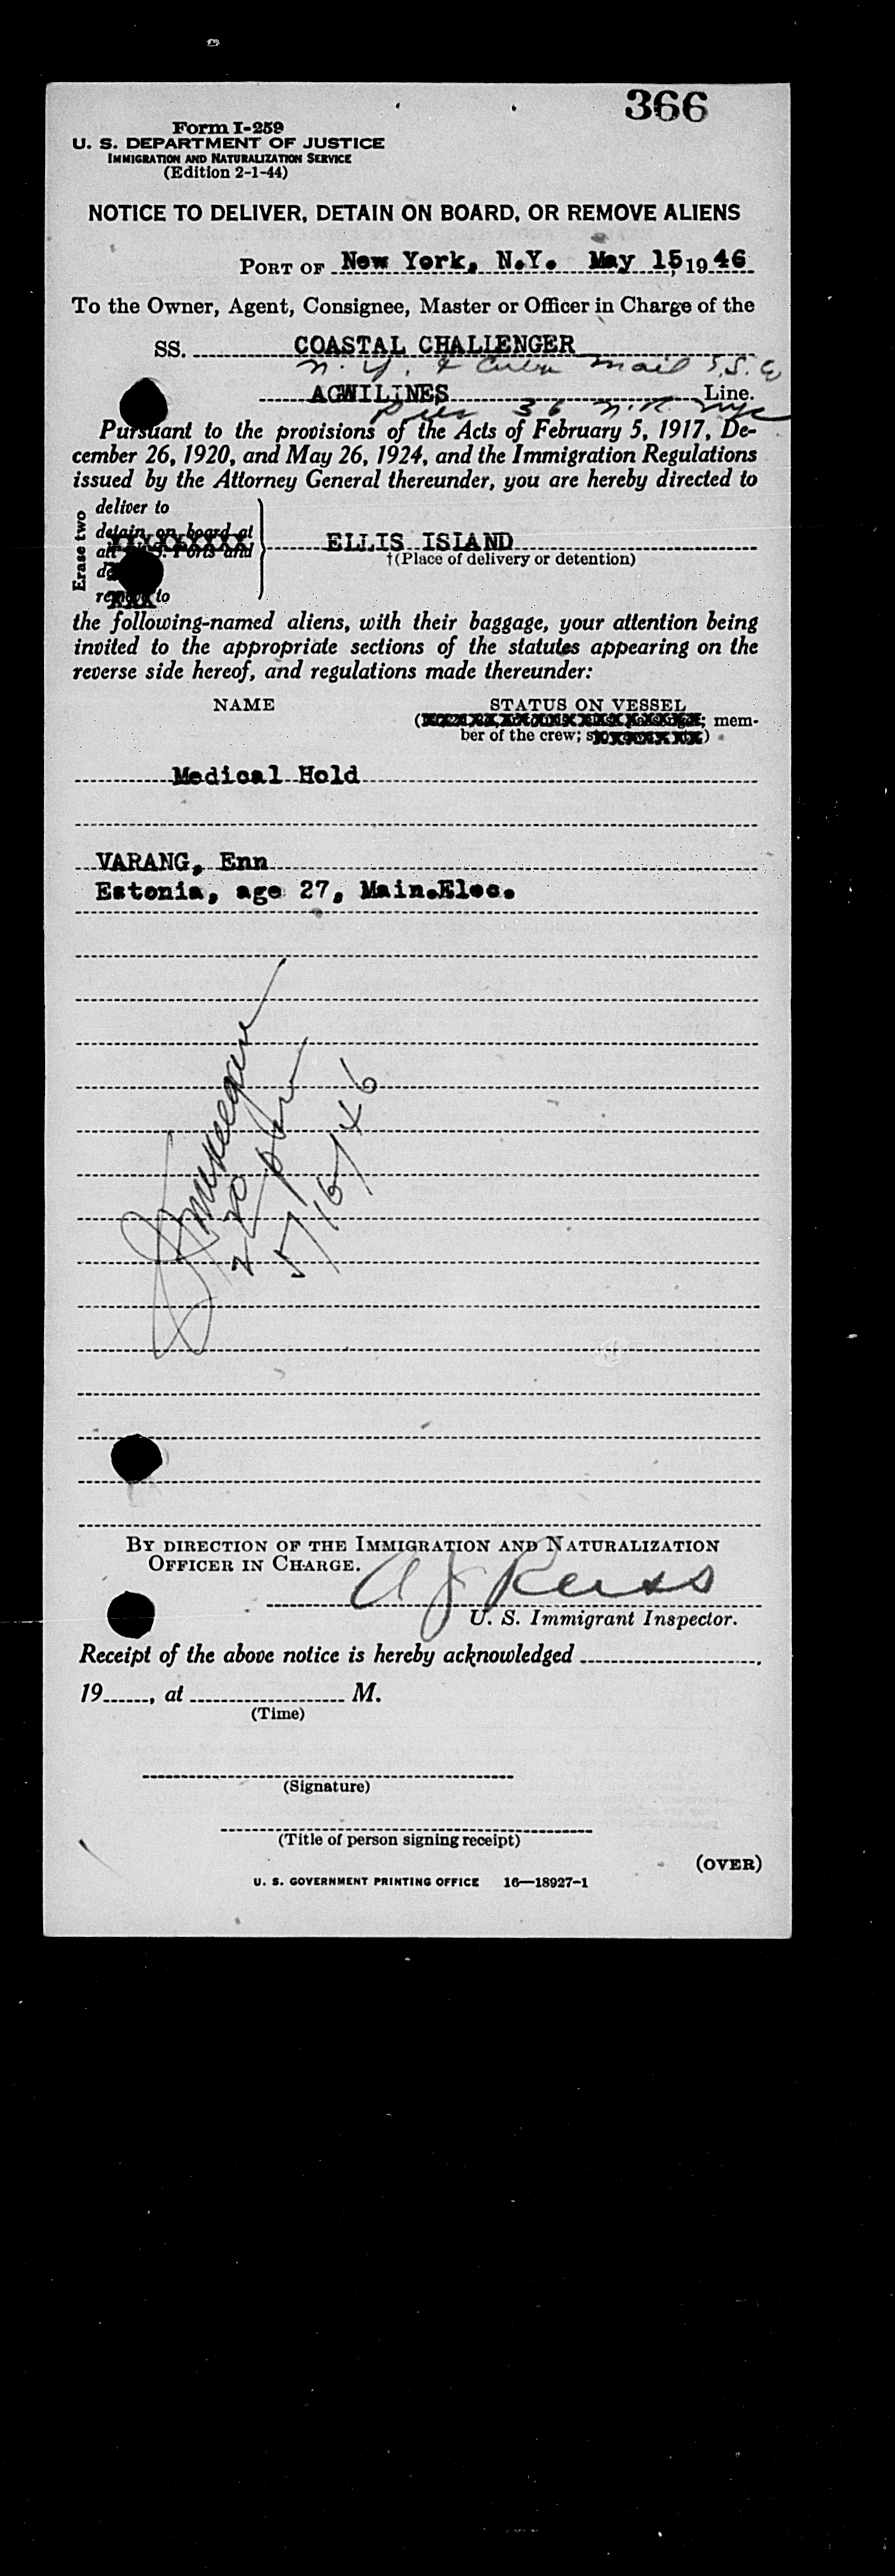 366
Form I-259
U. S. DEPARTMENT OF JUSTICE
IMMIGRATION AND NATURALIZATION SERVICE
(Edition 2-1-44)
NOTICE TO DELIVER, DETAIN ON BOARD, OR REMOVE ALIENS
PORT OF New York, N.Y. May 15, 1946
To the Owner, Agent, Consignee, Master or Officer in Charge of the
SS. COASTAL CHALLENGER
N. Y. & Cuba Mail S.S. Co
AGWILINES Line.
Pier 36 N.R. NYC
Pursuant to the provisions of the Acts of February 5, 1917, De-
cember 26, 1920, and May 26, 1924, and the Immigration Regulations
issued by the Attorney General thereunder, you are hereby directed to
Erase two
deliver to
detain on board at
all U. S. Ports and
remove to
ELLIS ISLAND
†(Place of delivery or detention)
the following-named aliens, with their baggage, your attention being
invited to the appropriate sections of the statutes appearing on the
reverse side hereof, and regulations made thereunder:
NAME STATUS ON VESSEL
mem-
ber of the crew;
Medical Hold
VARANG, Enn
Estonia, age 27, Main.Elec.
2 20 pm
5/16/46
BY DIRECTION OF THE IMMIGRATION AND NATURALIZATION
OFFICER IN CHARGE.
A J Reiss
U. S. Immigrant Inspector.
Receipt of the above notice is hereby acknowledged
19 , at M.
(Time)
(Signature)
(Title of person signing receipt)
(OVER)
U. S. GOVERNMENT PRINTING OFFICE 16—18927-1